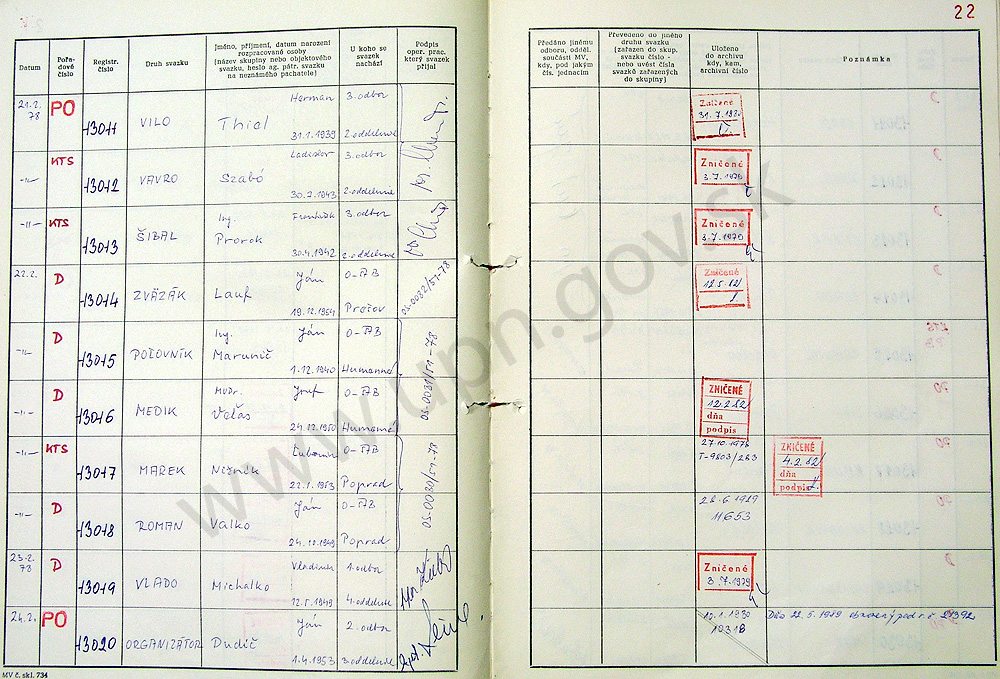 22
Datum
Pořadové číslo
Registr. číslo
Druh svazku
Jméno, příjmení, datum narození rozpracované osoby (název skupiny nebo objektového svazku, heslo ag. pátr. svazku na neznámého pachatele)
U koho se svazek nachází
Podpis oper. prac. který svazek přijal
Předáno jinému odboru, odděl. součásti MV, kdy, pod jakým čís. jednacím
Převedeno do jiného druhu svazku (zařazen do skup. svazku číslo - nebo uvést čísla svazků zařazených do skupiny)
Uloženo do archivu kdy, kam, archivní číslo
Poznámka
21.2. 78 PO 13011 VILO Herman Thiel 31.1.1939 3. odbor 2. oddelenie
Zničené 31.7.1980
-"- KTS 13012 VAVRO Ladislav Szabó 30.2.1943 3. odbor 2. oddelenie
Zničené 3.7.1979
-"- KTS 13013 ŠIBAL Ing. František Prorok 30.4.1942 3. odbor 2. oddelenie
Zničené 3.7.1979
22.2. D 13014 ZVÄZÁK Ján Lauf 19.12.1954 O-ŠTB Prešov
Zničené 12.5.82
-"- D 13015 POĽOVNÍK Ing. Ján Marunič 1.12.1940 O-ŠTB Humenné
-"- D 13016 MEDIK MUDr. Jozef Velas 24.12.1950 O-ŠTB Humenné
ZNIČENÉ 12.2.82 dňa podpis
-"- KTS 13017 MAREK Ľubomír Nižník 22.1.1953 O-ŠTB Poprad
27.10.1978 T-9803/283
ZNIČENÉ 4.2.82 dňa podpis
-"- D 13018 ROMAN Ján Valko 24.10.1949 O-ŠTB Poprad
28.6.1989 11653
23.2. 78 D 13019 VLADO Vladimír Michalko 12.5.1949 1. odbor 4. oddelenie
Zničené 3.7.1979
24.2. PO 13020 ORGANIZÁTOR Ján Dudič 1.4.1953 2. odbor 3. oddelenie
19318 Dňa 22.5.1989 obnovený pod r.č. 21392
MV č. skl. 734
www.upn.gov.sk